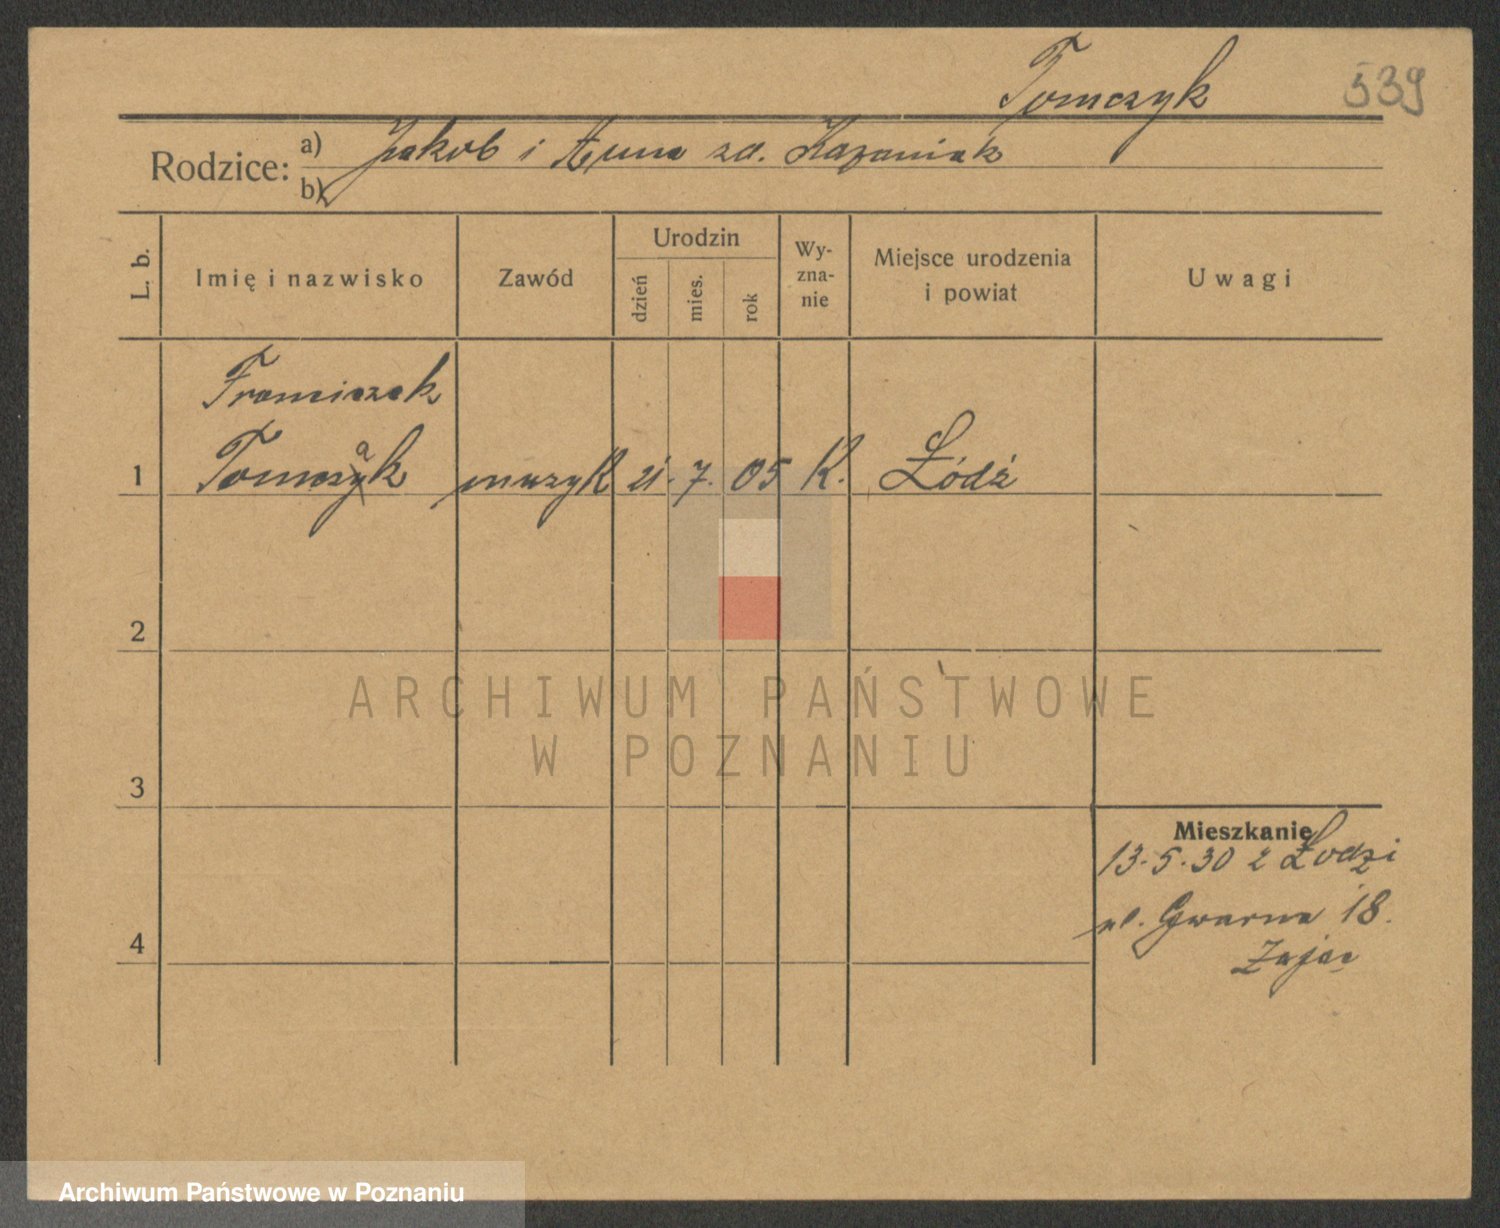 Tomczyk
539
Rodzice: a) Jakob i Anna zd. Kazaniak
b)
L. b.
Imię i nazwisko
Zawód
Urodzin
dzień
mies.
rok
Wy-
zna-
nie
Miejsce urodzenia
i powiat
Uwagi
Franciszek
a
1 Tomczyk muzyk 21. 7. 05 K. Łódź
2
ARCHIWUM PAŃSTWOWE
W POZNANIU
3
Mieszkanie
13.5.30 z Łodzi
4
ul. Gwarna 18.
Zając
Archiwum Państwowe w Poznaniu